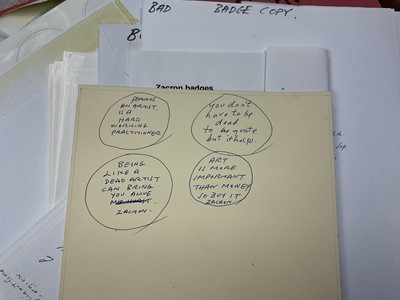 BAD BADGE COPY.
Zacron badges
AN ARTIST
IS A
HARD
WORKING
PRACTITIONER
you don't
have to be
dead
to be grate
but it helps.
BEING
LIKE A
DEAD ARTIST
CAN BRING
YOU ALIVE
ZACRON.
ART
IS MORE
IMPORTANT
THAN MONEY
SO BUY IT
ZACRON